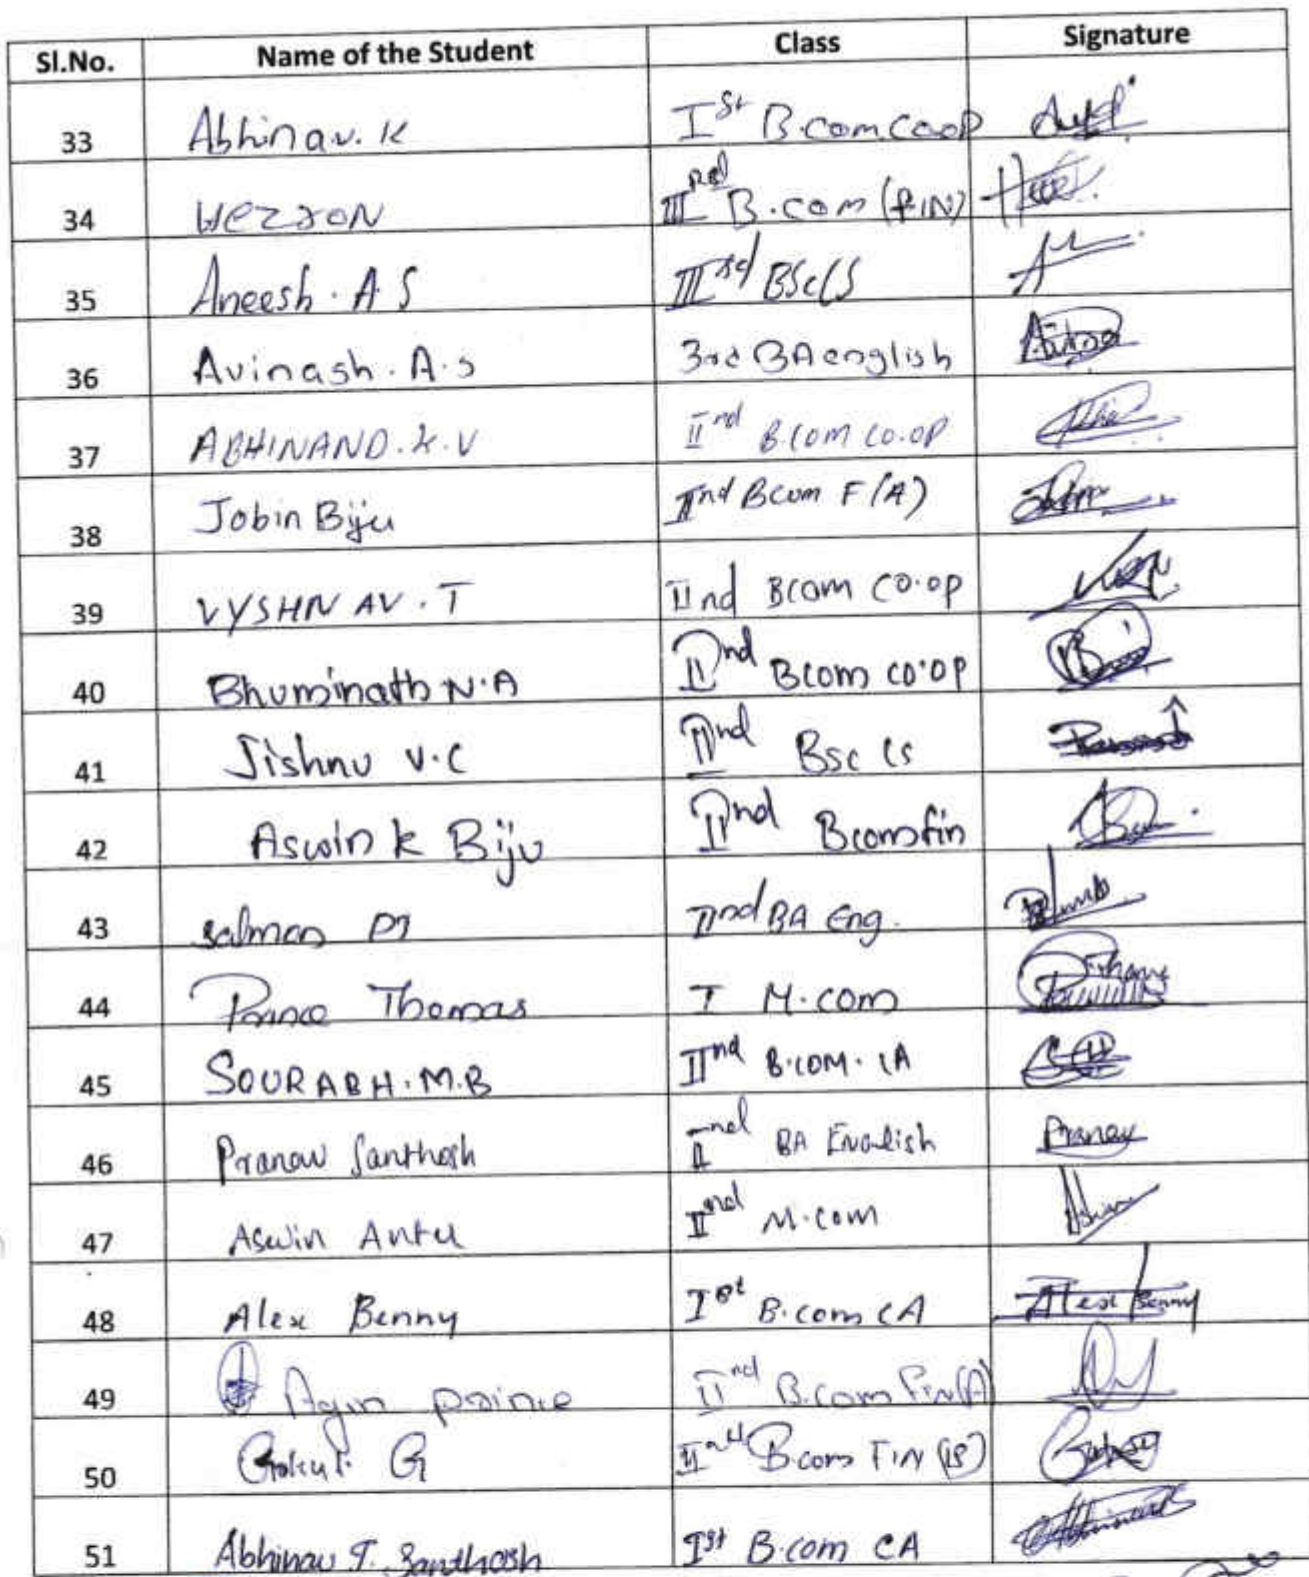 Sl.No. Name of the Student Class Signature
33 Abhinav. K Ist B.com.coop
34 HEZRON IIIrd B.com (FIN)
35 Aneesh. A S IIIrd BSc CS
36 Avinash. A.S 3rd BA english
37 ABHINAND. K. V IInd B.com co.op
38 Jobin Biju IInd Bcom F (A)
39 VYSHNAV. T IInd Bcom co.op
40 Bhuminath N.A IInd Bcom co.op
41 Jishnu V.C IInd Bsc CS
42 Aswin k Biju IInd Bcom fin
43 Salman IInd BA Eng.
44 Prince Thomas I M.com
45 SOURABH. M.B IInd B.COM. CA
46 Pranav Santhosh IInd BA English Pranav
47 Aswin Antu IInd M.com
48 Alex Benny Ist B.com CA Alex Benny
49 Agin prince IInd B.com Fin(A)
50 Gokul. G IInd B.com FIN (B)
51 Abhinav T. Santhosh Ist B.com CA